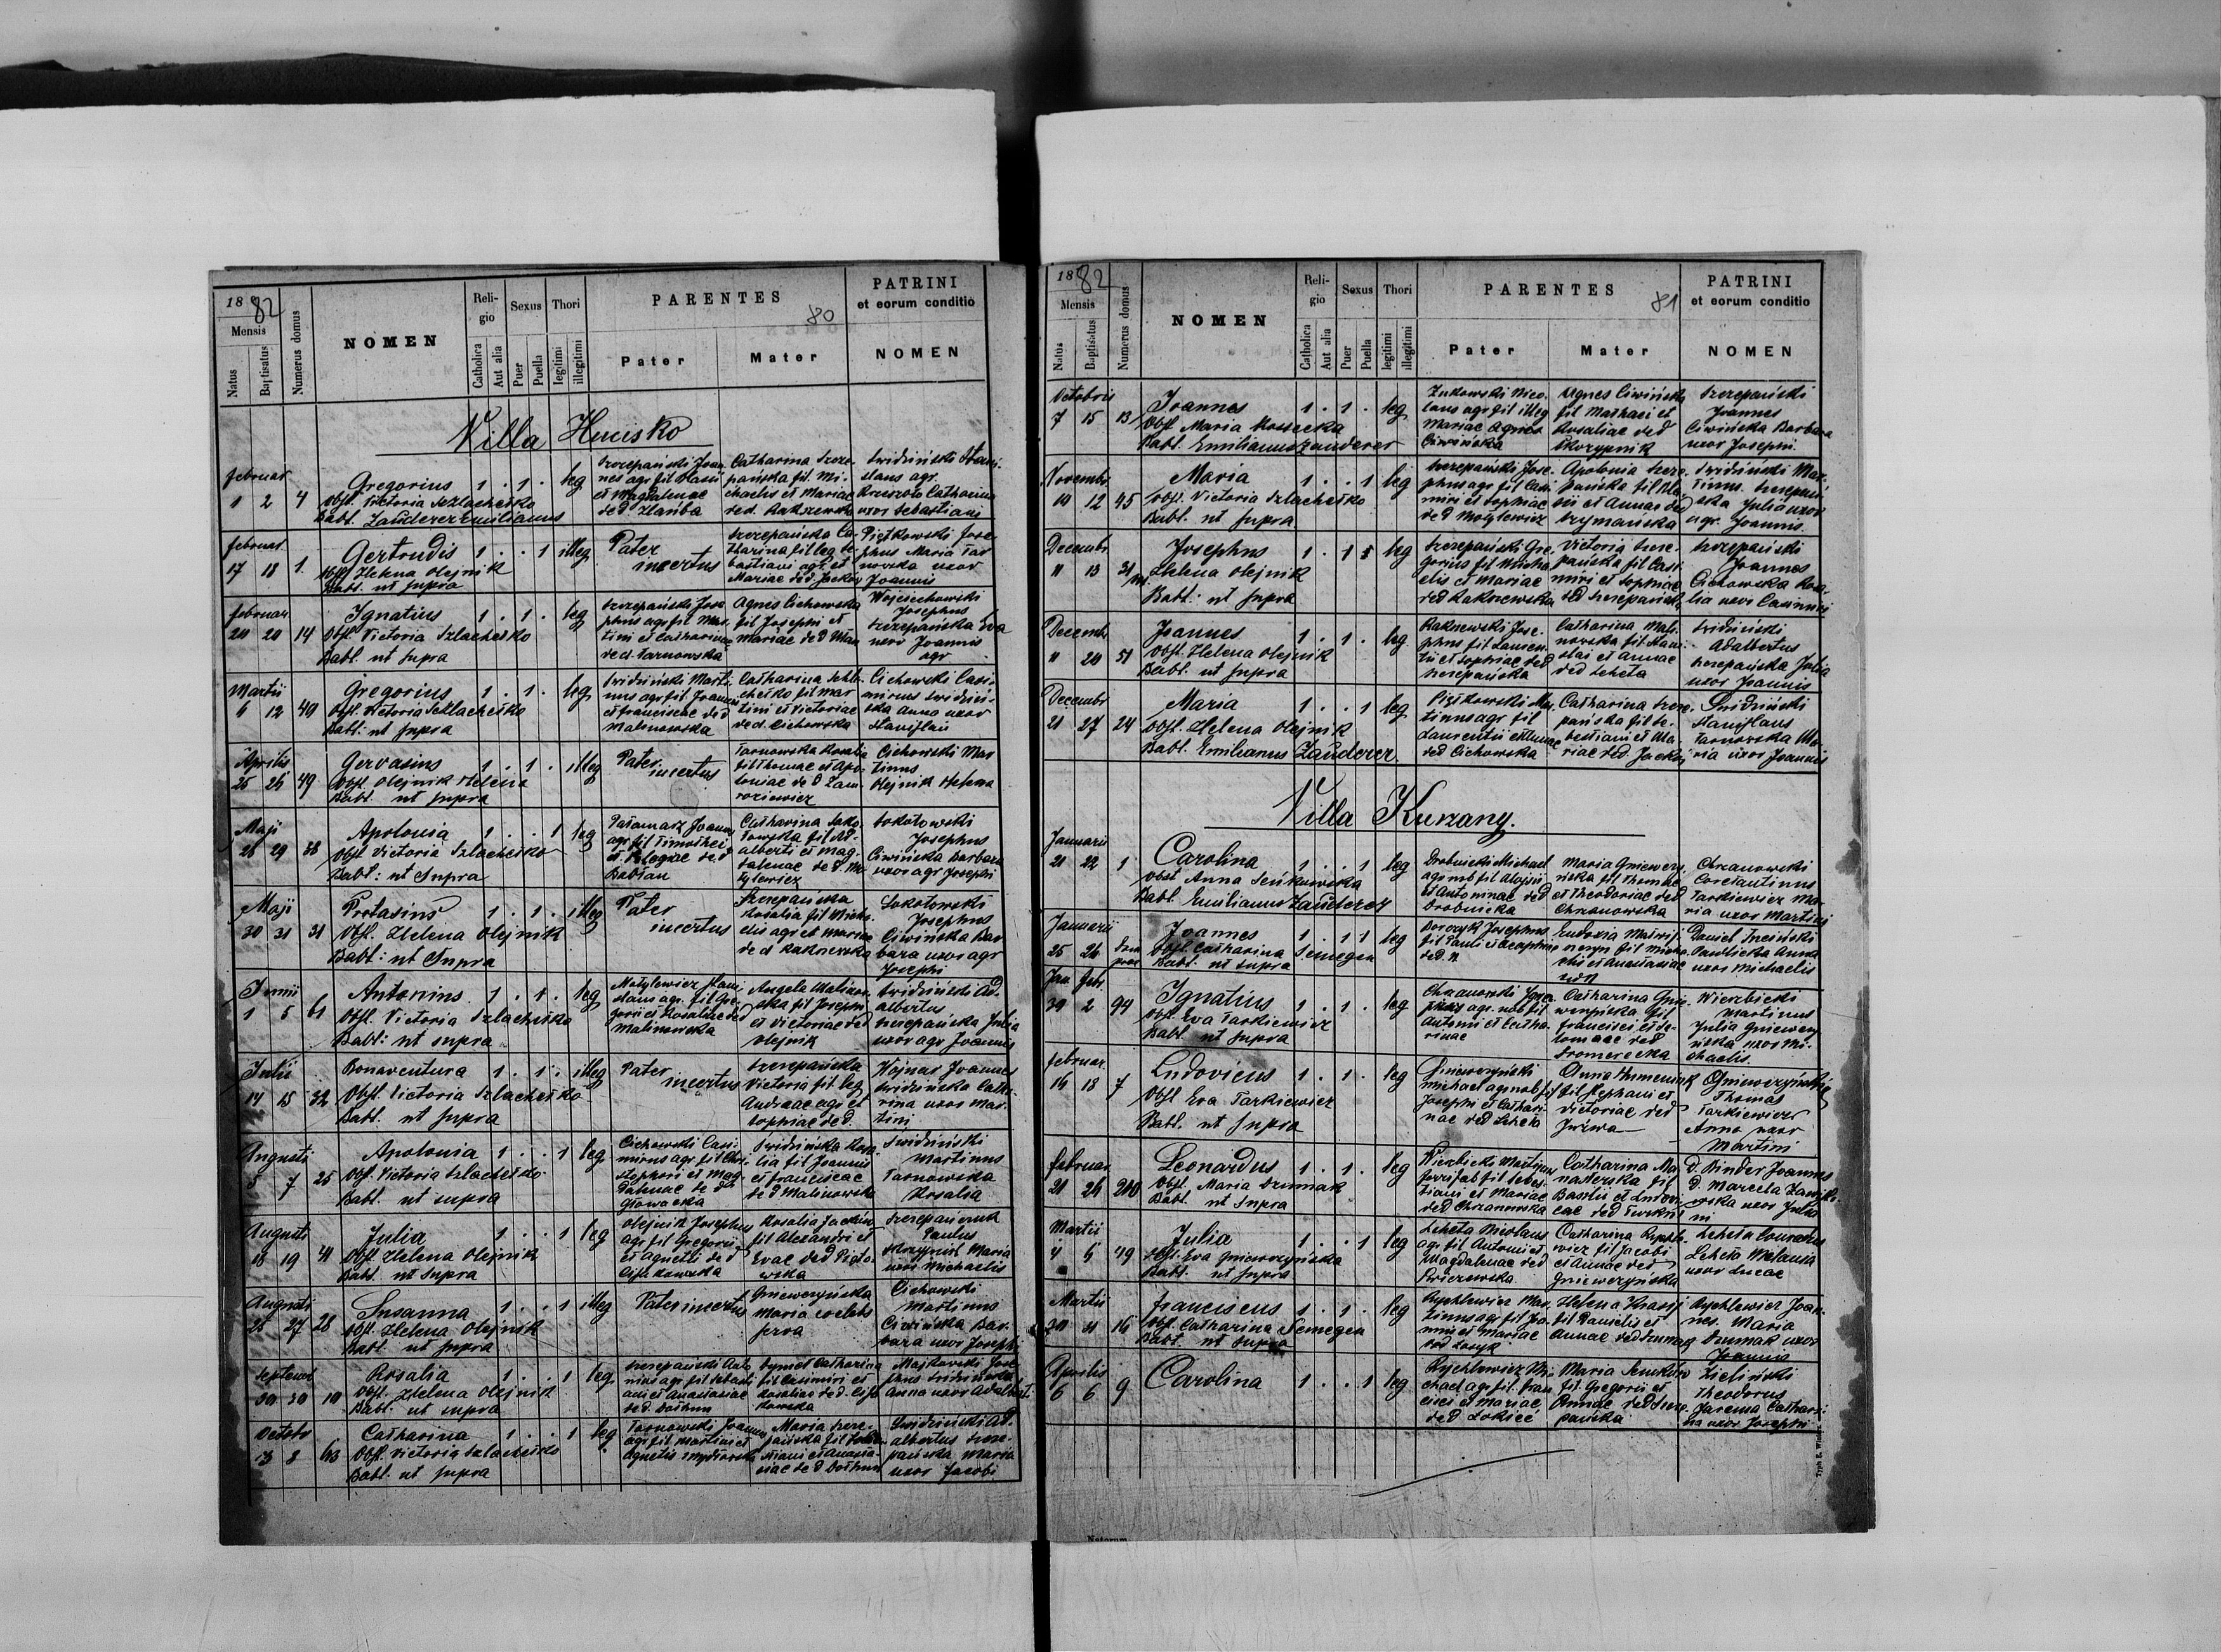 1882
Mensis
Natus
Baptisatus
Numerus domus
NOMEN
Reli-
gio
Catholica
Aut alia
Sexus
Puer
Puella
Thori
legitimi
illegitimi
PARENTES
80
Pater
Mater
PATRINI
et eorum conditio
NOMEN
Villa Hucisko
februar
1 2 4
Gregorius 1 . 1 . leg
Obst. Victoria Szlachetko
Babt. Zauderer Emilianus
Szczepański Joan
nes agr fil
et Magdalenae
de d
Catharina Szcze-
pańska fil. Mi-
chaelis et Mariae
de d. Rakszewska
Świdziński Stani-
slaus agr.
Catharina
uxor Sebastiani
februar.
17 18 1
Gertrudis 1 . . 1 illeg
Obst. Helena Olejnik
Babt. ut supra
Pater
incertus
Szczepańska Ca-
tharina fil leg Se-
bastiani agr. et
Mariae de d Jackow
Piątkowski Jose-
phus Maria Tar
nowska uxor
Joannis
februar.
20 20 14
Ignatius 1 . 1 . leg
Obst. Victoria Szlachetko
Babt. ut supra
Szczepański Jose
phus agr fil Mar-
tini et Catharinae
de d. Tarnowska
Agnes Cichowska
fil Josephi et
Mariae de d
Wojciechowski
Josephus
Szczepańska Eva
uxor Joannis
agr
Martii
6 12 49
Gregorius 1 . 1 . leg
Obst. Victoria Szlachetko
Babt. ut supra
Świdziński Marti-
nus agr fil Joannis
et Franciscae de d
Malinowska
Catharina Szla-
chetko fil Mar
tini et Victoriae
de d. Cichowska
Cichowski Casi-
mirus Świdziń-
ska Anna uxor
Stanislai
Aprilis
25 26 49
Gervasius 1 . 1 . illeg
Obst. Olejnik Helena
Babt. ut supra
Pater
incertus
Tarnowska Rosalia
fil Thomae et Apo-
loniae de d
Cichowski Mar
tinus
Olejnik Helena
Maji
28 29 38
Apolonia 1 . . 1 leg
Obst Victoria Szlachetko
Babt: ut Supra
Joannes
agr fil Timothei
et Pelagiae de d
Babian
Catharina Soko-
łowska fil Ad-
alberti et Mag-
dalenae de d. Mo
tylewicz
Sokołowski
Josephus
Ciwińska Barbara
uxor agr Josephi
Maji
30 31 31
Protasius 1 . 1 . illeg
Obst. Helena Olejnik
Babt: ut Supra
Pater
incertus
Szczepańska
Rosalia fil Micha-
elis agr et Mariae
de d Rakszewska
Sokołowski
Josephus
Ciwińska Bar
bara uxor agr
Josephi
Junii
1 5 61
Antonius 1 . 1 . leg
Obst. Victoria Szlachetko
Babt: ut supra
Motylewicz Stani-
slaus agr. fil Gre-
gorii et Rosaliae de d
Malinowska
Angela Malinow-
ska fil Josephi
et Victoriae de d
Olejnik
Świdziński Ad-
albertus
Szczepańska Julia
uxor agr Joannis
Julii
14 15 32
Bonaventura 1 . 1 . illeg
Obst. Victoria Szlachetko
Babt. ut supra
Pater
incertus
Szczepańska
Victoria fil leg
Andreae agr et
Sophiae de d.
Wojnar Joannes
Świdzińska Catha-
rina uxor Mar-
tini
Augusti
5 7 25
Apolonia 1 . . 1 leg
Obst. Victoria Szlachetko
Babt. ut supra
Cichowski Casi-
mirus agr. fil Chri-
stophori et Mag-
dalenae de d
Głowacka
Świdzińska Rosa-
lia fil Joannis
et Franciscae
de d Malinowska
Świdziński
Martinus
Tarnowska
Rosalia
Augusti
18 19 41
Julia 1 . . 1 leg
Obst. Helena Olejnik
Babt. ut supra
Olejnik Josephus
agr fil Gregorii
et Agnetis de d
Rosalia
fil Alexandri et
Evae de d Pioto-
wska
Szczepaniuk
Paulus
Maria
uxor Michaelis
Augusti
26 27 28
Susanna 1 . . 1 illeg
Obst. Helena Olejnik
Babt. ut supra
Pater incertus
Gniewczyńska
Maria coelebs
serva
Cichowski
Martinus
Ciwińska Bar-
bara uxor Josephi
Septembr
30 30 10
Rosalia 1 . . 1 leg
Obst. Helena Olejnik
Babt. ut supra
Szczepański Anto
nius agr. fil Sebasti
ani et Anastasiae
de d.
Catharina
fil Casimiri et
Rosaliae de d.
Majkowski Jose-
phus Świdzińska
Anna uxor Adalberti
Octobr
3 8 63
Catharina 1 . . 1 leg
Obst. Victoria Szlachetko
Babt. ut supra
Tarnowski Joannes
agr. fil Martini et
Agnetis
Maria Szcze-
pańska fil
et Anasta-
siae de d
Świdziński Ad-
albertus Szcze-
pańska Maria
uxor Jacobi
1882
Mensis
Natus
Baptisatus
Numerus domus
NOMEN
Reli-
gio
Catholica
Aut alia
Sexus
Puer
Puella
Thori
legitimi
illegitimi
PARENTES
81
Pater
Mater
PATRINI
et eorum conditio
NOMEN
Octobris
7 15 13
Joannes 1 . 1 . leg
Obst Maria
Babt. Emilianus Zauderer
Żukowski Nico-
laus agr fil illeg
Mariae Agnes
Ciwińska
Agnes Ciwińska
fil Mathaei et
Rosaliae de d
Skrzypnik
Szczepański
Joannes
Ciwińska Barbara
uxor Josephi
Novembr
10 12 45
Maria 1 . . 1 leg
Obst. Victoria Szlachetko
Babt. ut supra
Szczepański Jose-
phus agr fil Casi-
miri et Sophiae
de d Motylewicz
Apolonia Szcze-
pańska fil Bla-
sii et Annae de d
Szymańska
Świdziński Mar-
tinus. Szczepań
ska Julia uxor
agr. Joannis
Decembr
11 13 31
Josephus 1 . 1 leg
Helena Olejnik
Babt: ut supra
Szczepański Gre-
gorius fil Micha-
elis et Mariae
de d Rakszewska
Victoria Szcze-
pańska fil Casi
miri et Sophiae
de d Szczepańska
Szczepański
Joannes
Cichowska Rosa-
lia uxor Casimiri
Decembr
11 20 51
Joannes 1 . 1 . leg
Obst. Helena Olejnik
Babt. ut supra
Rakszewski Jose-
phus fil Lauren-
tii et Sophiae de d
Szczepańska
Catharina Mali-
nowska fil Stani-
slai et Annae
de d Leheta
Świdziński
Adalbertus
Szczepańska Julia
uxor Joannis
Decembr
21 27 24
Maria 1 . . 1 leg
Obst. Helena Olejnik
Babt. Emilianus Zauderer
Piątkowski Mar
tinus agr fil
Laurentii et Annae
de d Cichowska
Catharina Szcze-
pańska fil Se-
bastiani et Ma-
riae de d Jackow
Świdziński
Stanislaus
Tarnowska Ma-
ria uxor Joannis
Villa Kurzany.
Januarii
21 22 1
Carolina 1 . . 1 leg
Obst Anna Seńkowska
Babt. Emilianus Zauderer
Drobnicki Michael
agr nob fil Aloysii
et Antoninae de d
Drobnicka
Maria Gniewczy-
ńska fil Thomae
et Theodorae de d
Chrzanowska
Chrzanowski
Constantinus
Tarkiewicz Ma-
ria uxor Martini
Januarii
25 26
Joannes 1 . 1 leg
Obst. Catharina Semegen
Babt. ut supra
Josephus
fil Pauli et
de d. N
Eudoxia
fil Micha-
elis et Anastasiae
de d N
Daniel
Pawlicka Anna
uxor Michaelis
Jan. febr.
30 2 99
Ignatius 1 . 1 . leg
Obst. Eva Tarkiewicz
Babt. ut supra
Chrzanowski Igna-
tius agr. nob fil
Antonii et Catha-
rinae
Catharina Gnie-
wczyńska fil
Francisci et Sa-
lomeae de d
Wierzbicki
Martinus
Julia Gniewczy-
ńska uxor Mi-
chaelis.
februar.
16 18 7
Ludovicus 1 . 1 . leg
Obst Eva Tarkiewicz
Babt. ut supra
Gniewczyński
Michael agr nob fil
Josephi et Cathari-
nae de d Leheta
Anna Humeniuk
fil Stephani et
Victoriae de d
Gniewczyński
Thomas
Tarkiewicz
Anna uxor
Martini
februar.
21 26 200
Leonardus 1 . 1 . leg
Obst. Maria Drumak
Babt. ut supra
Wierzbicki Martinus
fil Sebas-
tiani et Mariae
de d Chrzanowska
Catharina Ma-
fil
Basilii et Ludovi-
cae de d
D. Binder Joannes
D. Marcela
uxor Julii
Martii
4 6 49
Julia 1 . . 1 leg
Obst. Eva Gniewczyńska
Babt. ut supra
Leheta Nicolaus
agr fil Antonii et
Magdalenae de d
Catharina Rychle-
wicz fil Jacobi
et Annae de d
Gniewczyńska
Leheta
Leheta Melania
uxor Lucae
Martii
16
Franciscus 1 . 1 . leg
Obst. Catharina Semegen
Babt. ut supra
Rychlewicz Mar-
tinus agr fil Joa-
nnis et Mariae
de d
Helena
fil Danielis et
Annae de d
Rychlewicz Joan-
nes. Maria
Drumak uxor
Joannis
Aprilis
6 6 9
Carolina 1 . . 1 leg
Rychlewicz Mi-
chael agr fil. Fran
cisci et Mariae
de d
Maria
fil. Gregorii et
Annae de d Szcze-
pańska
Zieliński
Theodorus
Jarema Cathari-
na uxor Josephi